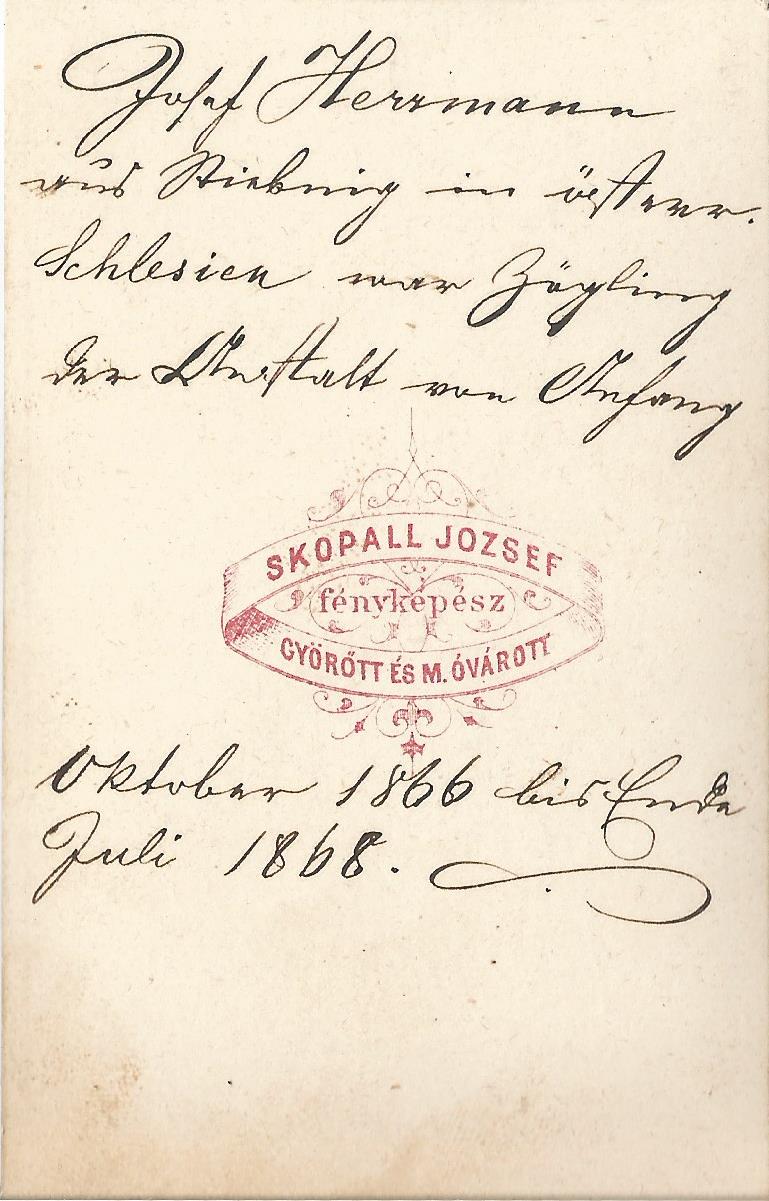 Josef Herrmann
aus Stiebnig in österr.
Schlesien war Zögling
der Anstalt von Anfang
SKOPALL JOZSEF
fényképész
GYÖRŐTT ÉS M. ÓVÁROTT
Oktober 1866 bis Ende
Juli 1868.